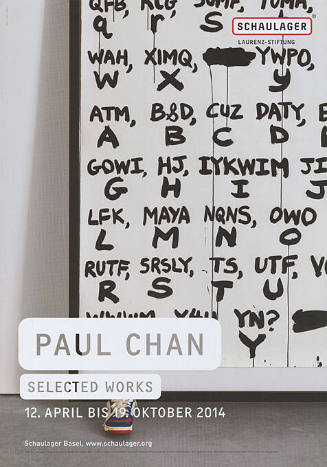 SCHAULAGER®
LAURENZ-STIFTUNG
q r S
WAH, XIMQ, YWPO,
W X y
ATM, B&D, CUZ DATY,
A B C D
GOWI, HJ, IYKWIM
G H I J
LFK, MAYA NQNS, OWO
L M N O
RUTF, SRSLY, TS, UTF,
R S T U
YN?
Y
PAUL CHAN
SELECTED WORKS
12. APRIL BIS 19. OKTOBER 2014
Schaulager Basel, www.schaulager.org